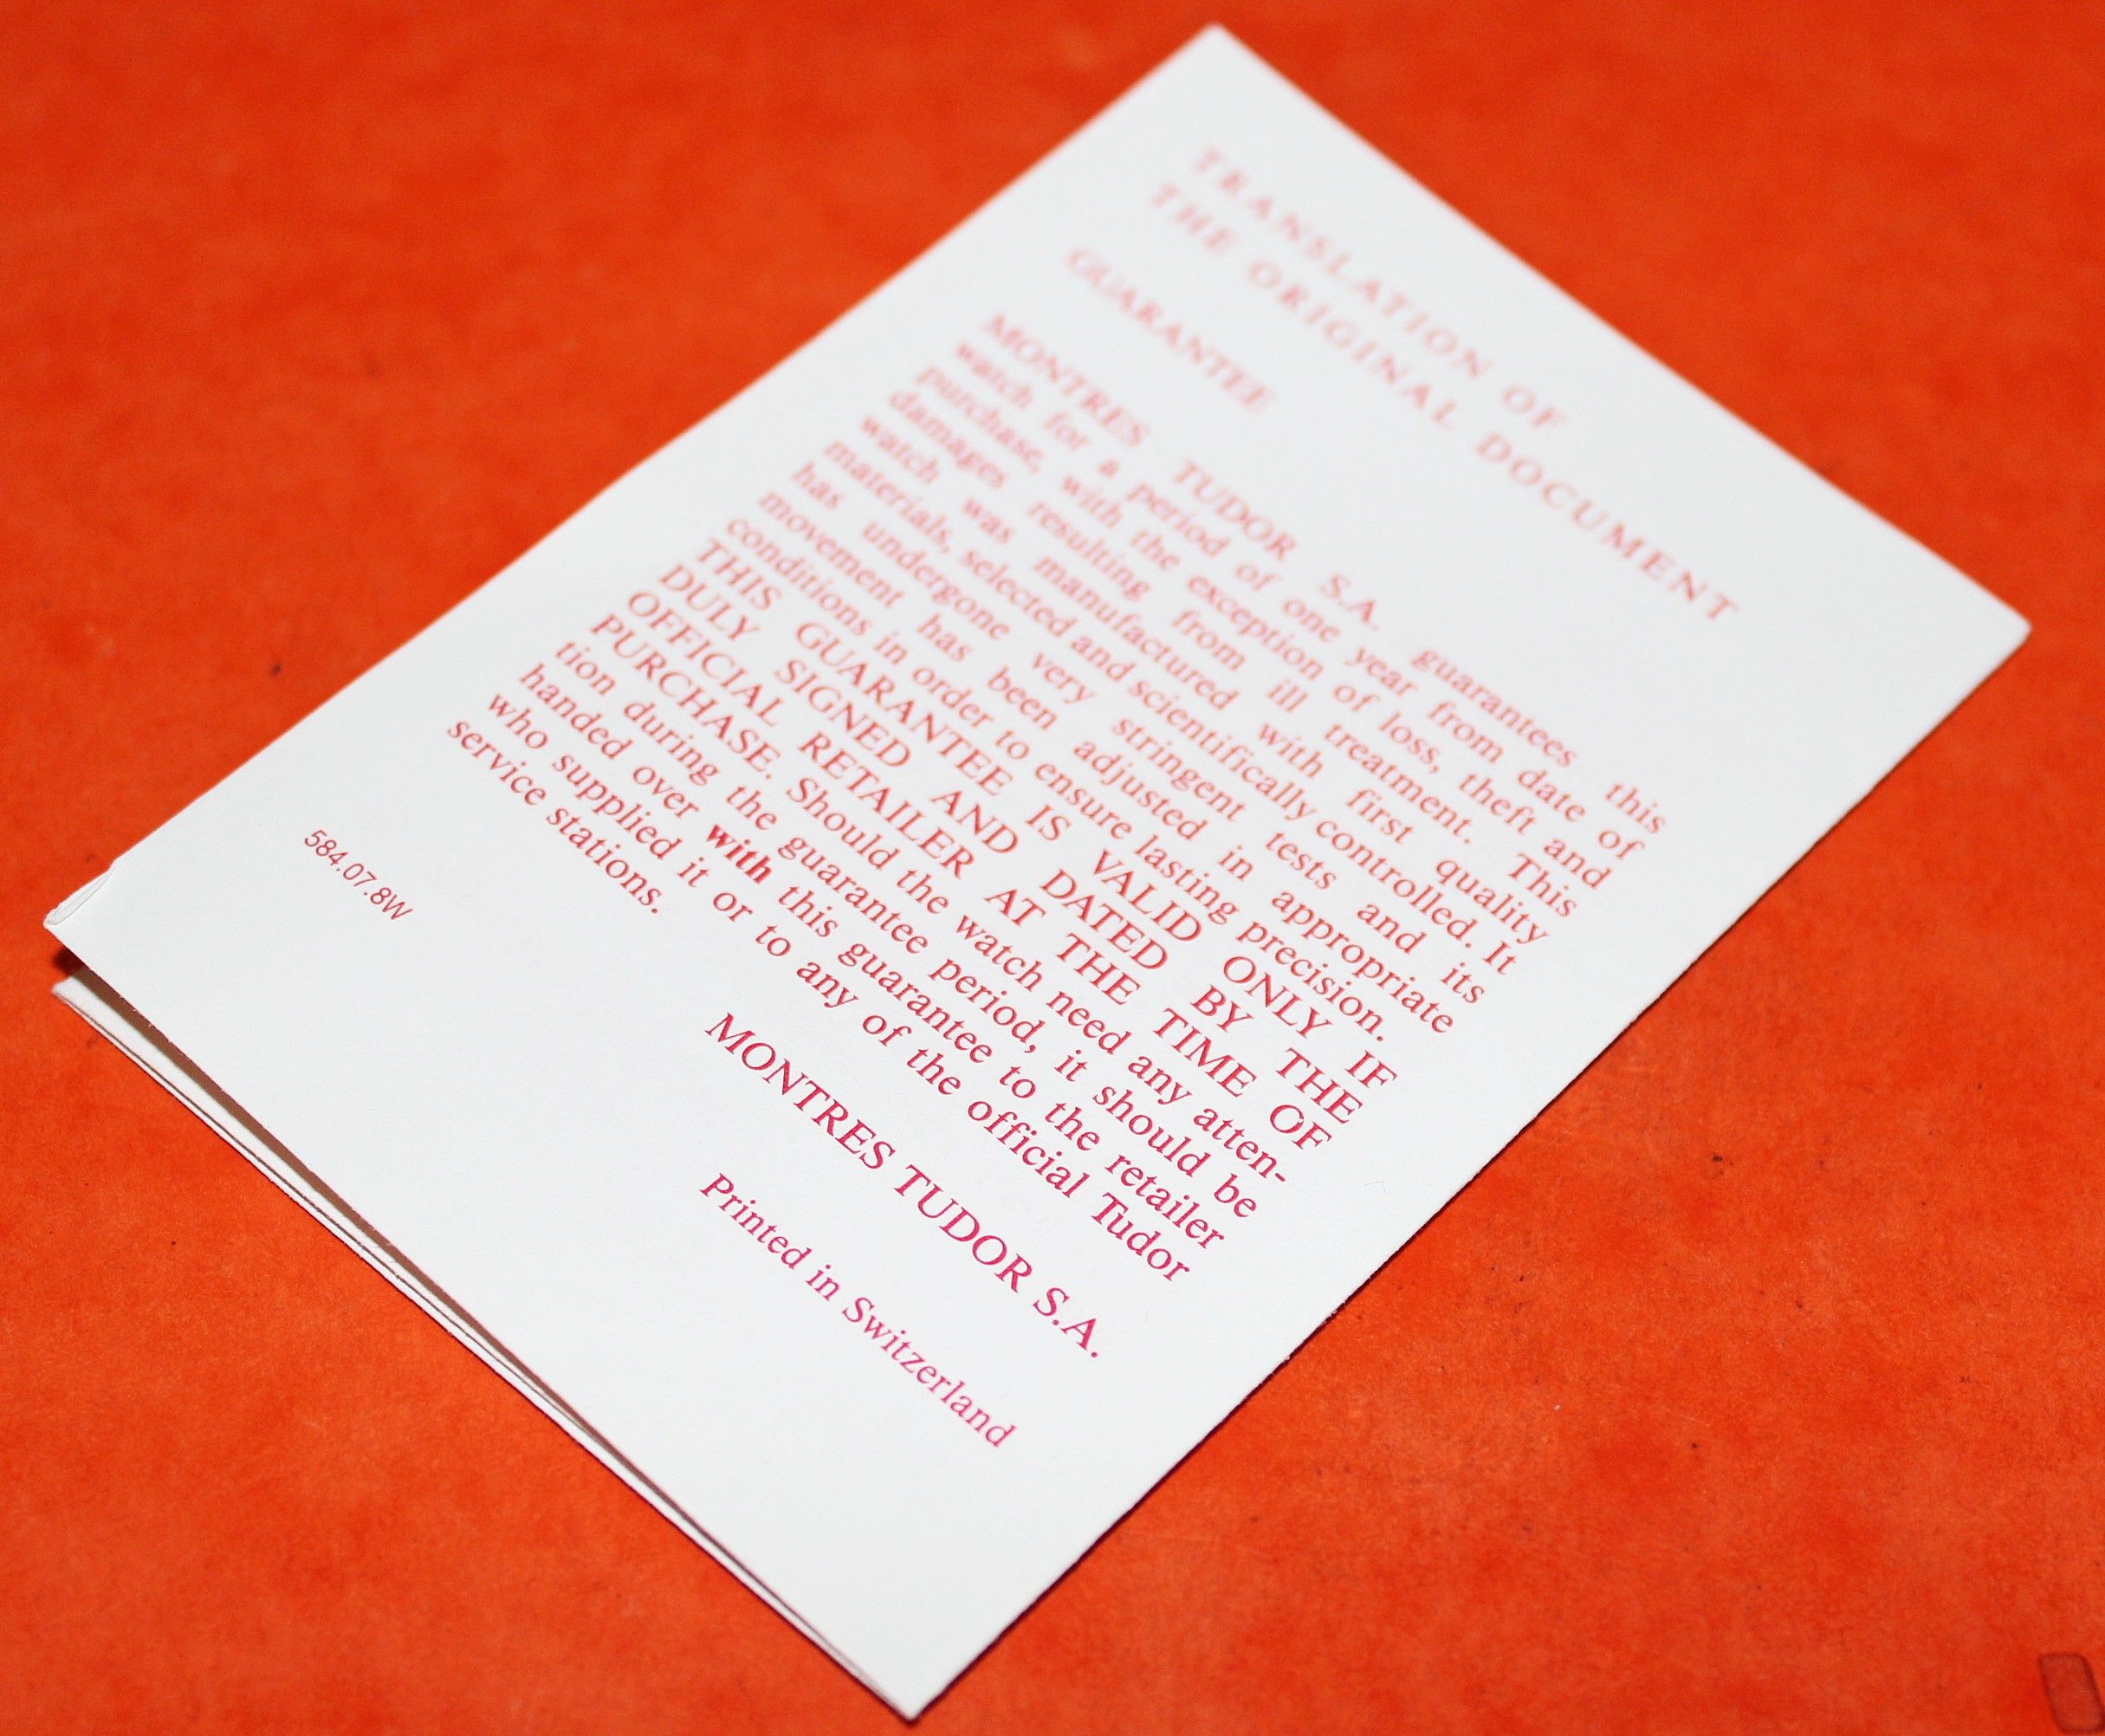 TRANSLATION OF
THE ORIGINAL DOCUMENT
GUARANTEE
MONTRES TUDOR S.A. guarantees this
watch for a period of one year from date of
purchase, with the exception of loss, theft and
damages resulting from ill treatment. This
watch was manufactured with first quality
materials, selected and scientifically controlled. It
has undergone very stringent tests and its
movement has been adjusted in appropriate
conditions in order to ensure lasting precision.
THIS GUARANTEE IS VALID ONLY IF
DULY SIGNED AND DATED BY THE
OFFICIAL RETAILER AT THE TIME OF
PURCHASE. Should the watch need any atten-
tion during the guarantee period, it should be
handed over with this guarantee to the retailer
who supplied it or to any of the official Tudor
service stations.
MONTRES TUDOR S.A.
Printed in Switzerland
584.07.8W